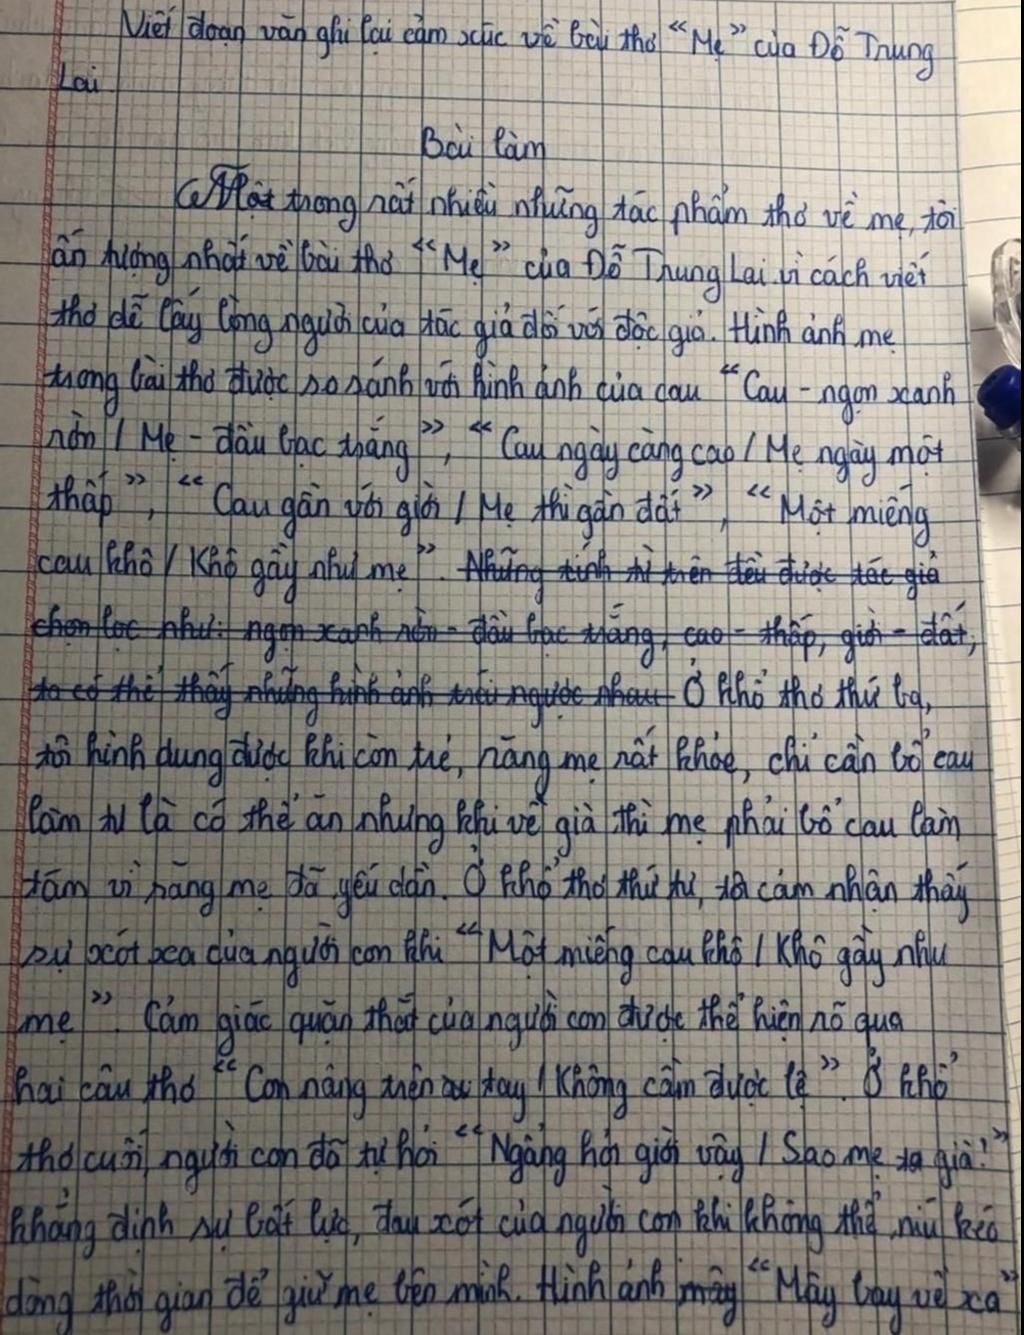 Viết đoạn văn ghi lại cảm xúc về bài thơ "Mẹ" của Đỗ Trung
Lai
Bài làm
Một trong rất nhiều những tác phẩm thơ về mẹ, tôi
ấn tượng nhất về bài thơ "Mẹ" của Đỗ Trung Lai vì cách viết
thơ dễ lấy lòng người của tác giả đối với độc giả. Hình ảnh mẹ
trong bài thơ được so sánh với hình ảnh của cau "Cau - ngọn xanh
rờn / Mẹ - đầu bạc trắng", "Cau ngày càng cao / Mẹ ngày một
thấp", "Cau gần với giời / Mẹ thì gần đất", "Một miếng
cau khô / Khô gầy như mẹ". Những tính từ trên đều được tác giả
chọn lọc như: ngọn xanh rờn - đầu bạc trắng, cao - thấp, giời - đất,
ta có thể thấy những hình ảnh trái ngược nhau Ở khổ thơ thứ ba,
tôi hình dung được khi còn trẻ, răng mẹ rất khỏe, chỉ cần bổ cau
làm tư là có thể ăn nhưng khi về già thì mẹ phải bổ cau làm
tám vì răng mẹ đã yếu dần. Ở khổ thơ thứ tư, ta cảm nhận thấy
sự xót xa của người con khi "Một miếng cau khô / Khô gầy như
mẹ". Cảm giác quặn thắt của người con được thể hiện rõ qua
hai câu thơ "Con nâng trên tay / Không cầm được lệ". Ở khổ
thơ cuối, người con đã tự hỏi "Ngẩng hỏi giời vậy / Sao mẹ ta già?"
khẳng định sự bất lực, đau xót của người con khi không thể níu kéo
dòng thời gian để giữ mẹ bên mình. Hình ảnh mây "Mây bay về xa"